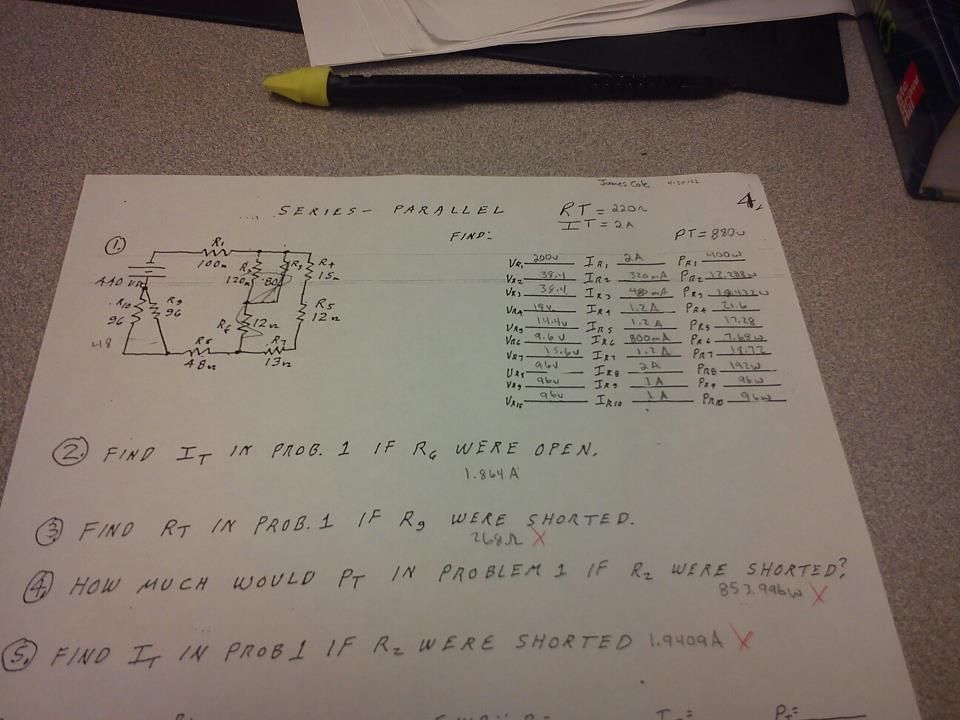 James Cole 4-30-12
4.
SERIES- PARALLEL
RT = 220Ω
IT = 2A
FIND:
PT = 880w
1.
R1
100Ω
440V
R10
96
R9
96
48
R8
48Ω
120Ω
80
R3
R4
15Ω
R5
12Ω
R6
12Ω
R7
13Ω
VR1 200v IR1 2A PR1 400w
VR2 38.4 IR2 320mA PR2 12.288w
VR3 38.4 IR3 480mA PR3 18.432w
VR4 18v IR4 1.2A PR4 21.6
VR5 14.4v IR5 1.2A PR5 17.28
VR6 9.6v IR6 800mA PR6 7.68w
VR7 15.6v IR7 1.2A PR7 18.72
VR8 96v IR8 2A PR8 192w
VR9 96v IR9 1A PR9 96w
VR10 96v IR10 1A PR10 96w
2. FIND IT IN PROB. 1 IF R6 WERE OPEN.
1.864A
3. FIND RT IN PROB. 1 IF R9 WERE SHORTED.
268Ω X
4. HOW MUCH WOULD PT IN PROBLEM 1 IF R2 WERE SHORTED?
853.996w X
5. FIND IT IN PROB 1 IF R2 WERE SHORTED 1.9409A X
PT=